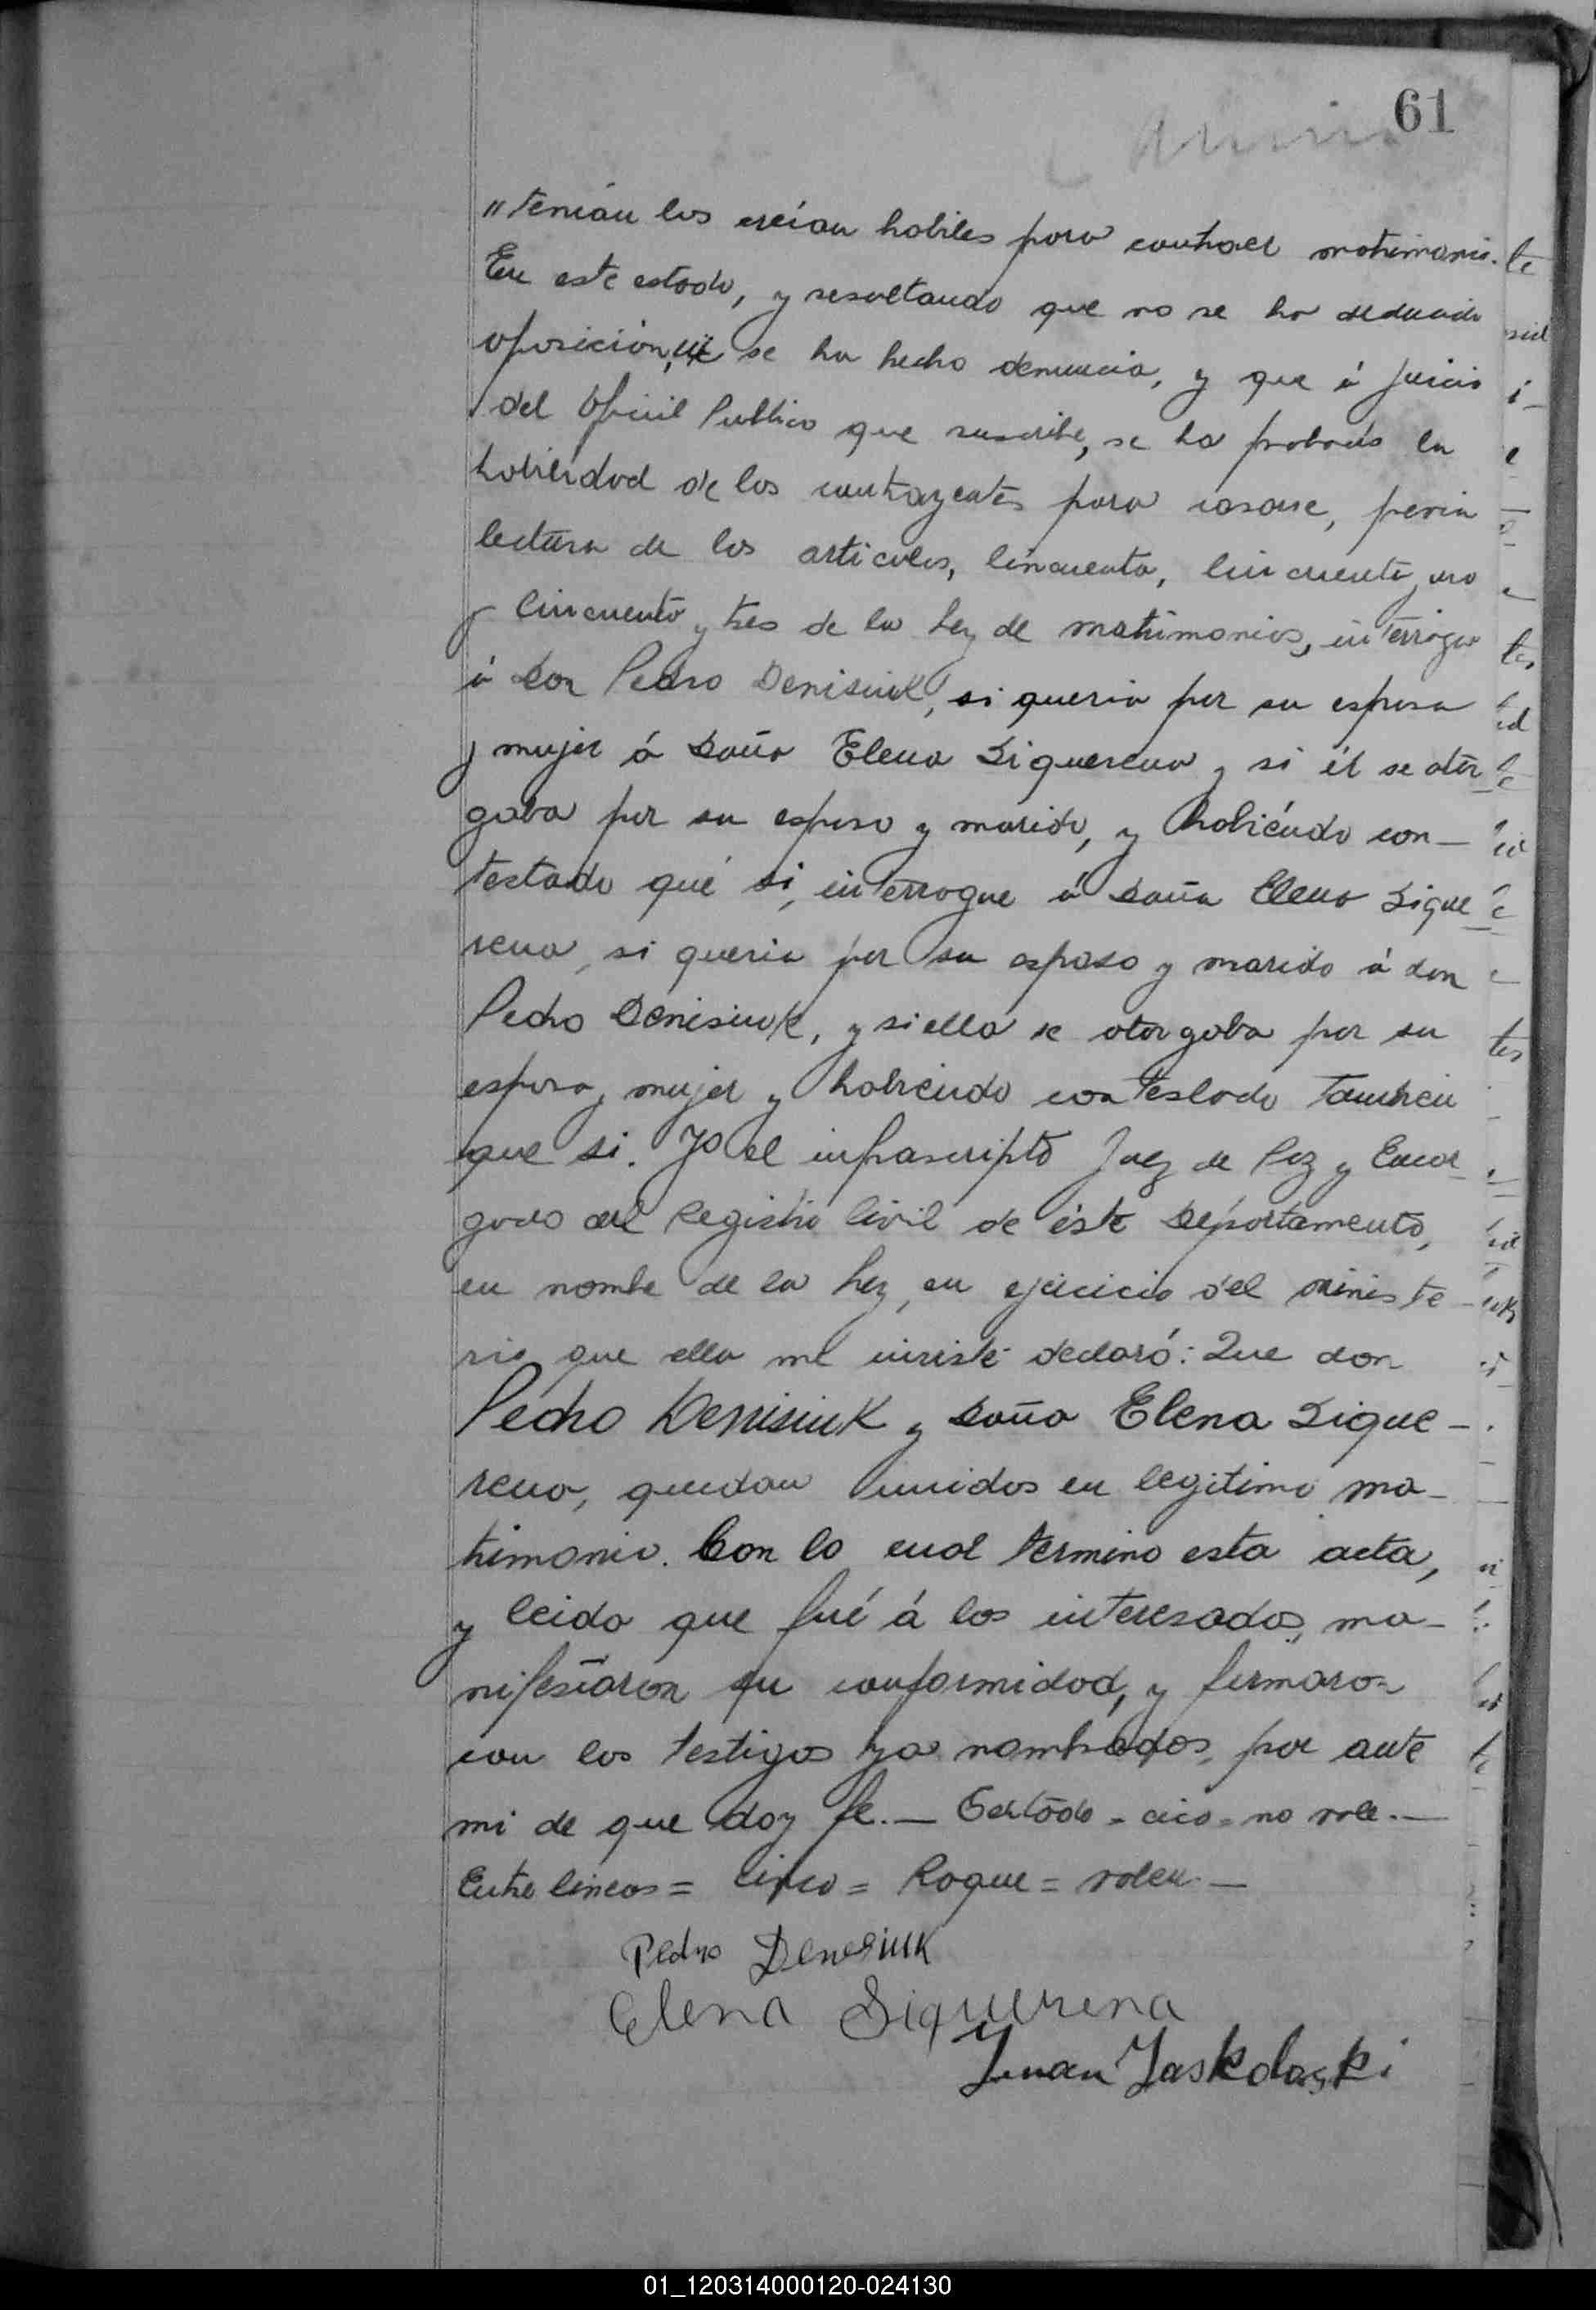 61
"tenian los creian habiles para contraer matrimonio.
En este estado, y resultando que no se ha deducido
oposición, ni se ha hecho denuncia, y que á juicio
del Oficial Publico que suscribe, se ha probado la
habilidad de los contrayentes para casarse, previa
lectura de los articulos, Cincuenta, Cincuenta y uno
y Cincuenta y tres de la Ley de matrimonios, interrogue
á Don Pedro Denisiuk, si queria por su esposa
y mujer á Doña Elena Siquerena y si él se otor
gaba por su esposo y marido, y habiéndo con-
testado qué si, interrogue á Doña Elena Sique
rena, si queria por su esposo y marido á don
Pedro Denisiuk, y si ella se otorgaba por su
esposa y mujer y habiendo contestado tambien
que si. Yo el infrascripto Juez de Paz y Encar
gado del Registro Civil de éste Departamento,
en nombre de la Ley, en ejercicio del ministe-
rio que ella me inviste declaró: Que don
Pedro Denisiuk y Doña Elena Sique-
rena, quedan unidos en legitimo ma-
trimonio. Con lo cual termino esta acta,
y leida que fué á los interesados, ma-
nifestaron su conformidad, y firmaron
con los testigos ya nombrados, por ante
mi de que doy fe.— no vale.—
Entre lineas = cinco = Roque = valen.—
Pedro Denesiuk
Elena Siquerena
Juan Jaskolaski
01_120314000120-024130